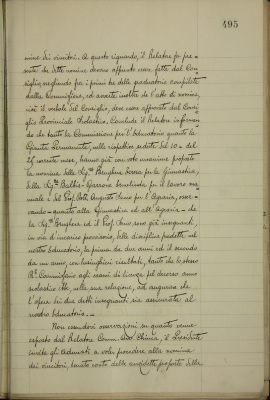 495
nine di vincitori. A questo riguardo, il Relatore fa pre-
sente che dette nomine devono affunto esser fatte dal Con-
siglio, scegliendo fra i primi tre delle graduatorie compilate
dalla Commissione, ed avverte inoltre che l'atto di nomina,
cioè il verbale del Consiglio, deve esser approvato dal Consi-
glio Provinciale Scolastico. Conclude il Relatore informan-
do che tanto la Commissione per l'Educatorio quanto la
Giunta Permanente, nelle rispettive sedute del 20 e del
25 corrente mese, hanno già con voto unanime proposto
la nomina della Sig.na Brughera Teresa per la Ginnastica,
della Sig.na Balbis-Garrone per il lavoro ma-
nuale e del Prof. Dott. Augusto per l'Agraria, osser-
vando - quanto alla Ginnastica ed all'Agraria - che
la Sig.na Brughera ed il Prof. sono già insegnanti,
in via di incarico provvisorio, delle discipline predette, nel
nostro Educatorio, la prima da due anni ed il secondo
da un anno, con lusinghieri risultati, tanto che lo stesso
R.o Commissario agli esami di licenza pel decorso anno
scolastico ebbe, nella sua relazione, ad augurare che
l'opera dei due detti insegnanti sia assicurata al
nostro Educatorio. -
Non essendovi osservazioni su quanto venne
esposto dal Relatore Comm. Chiesa, il Presidente
invita gli adunati a voler procedere alla nomina
dei vincitori, tenuto conto della proposti dalla